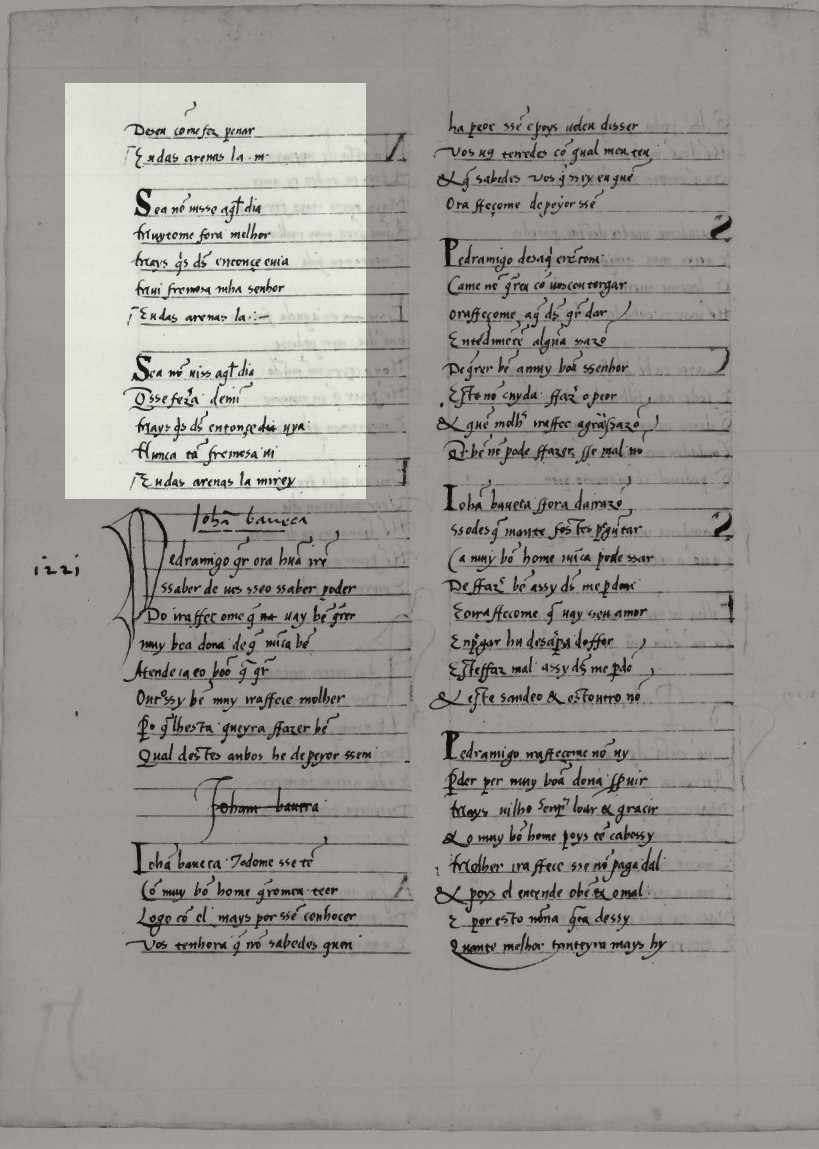 Desen cōmefez penar
E ndas arenas la m
Sea nō uisse aql̄ dia
Muytome fora melhor
Mays q̄s ds̄ entonçe euia
Mui fremosa mha senhor
E ndas arenas la
Sea nō uiss aql̄ dia
Qsse fezā demī
Mays q̄s ds̄ entonçe dia uya
Nunca tā fremosa ui
E ndas arenas la mirey
Johā baueca
1221
Pedramigo q̄r ora huā rē
ssaber de uos sseo ssaber poder
Do iraffeç ome q̄ na uay bē q̄rer
muy boa dona de q̄ nūca bē
Atende ia eo boō q̄ q̄r
Outssy bē muy iraffece molher
P̄o q̄ lhesta queyra ffazer bē
Qual destes anbos he depeyor ssem
Joham baueca
Johā baueca Todome sse tē
Cō muy bō home q̄romeu teer
Logo cō el mays por ssē conhocer
Vos tenhora q̄ nō sabedes quen
ha peor ssē e poys uolen disser
Vos ug tenredes cō qual meu teu
& q̄ sabedes vos q̄ ssey eu quē
Ora ffeçome de peyor ssē
Pedramigo desaq̄ erētom
Came nō q̄reu cō uoscoutorgar
oraffeçome aq̄ ds̄ q̄r dar
Entēdimētē algūa sazō
De q̄rer bē a muy boā ssenhor
Este nō cuyda ffazr̄ o peor
& quē molh̄ iraffec agrāssazō
Q̄r bē nō pode ffazer sse mal nō
Johā baueca ffora da irazō
ssodes q̄ mante fostes p̄gūtar
Ca muy bō home nūca pode ssar
De ffazr̄ bē assy ds̄ me p̄don
Eoiraffecome q̄ uay seu amor
Enp̄gar hu desasp̄a doffor
Esteffaz mal assy ds̄ me p̄dō
& este sandeo & estoutro nō
Pedramigo iraffeçome nō uy
P̄der per muy boā dona s̄suir
Mays uilho senp̄ loar & gracir
& o muy bō home poys tē cabossy
Molher iraffece sse nō paga dal
& poys el entende o bē & o mal
E por esto nōna q̄ta dessy
Quante melhor tanteyra mays hy